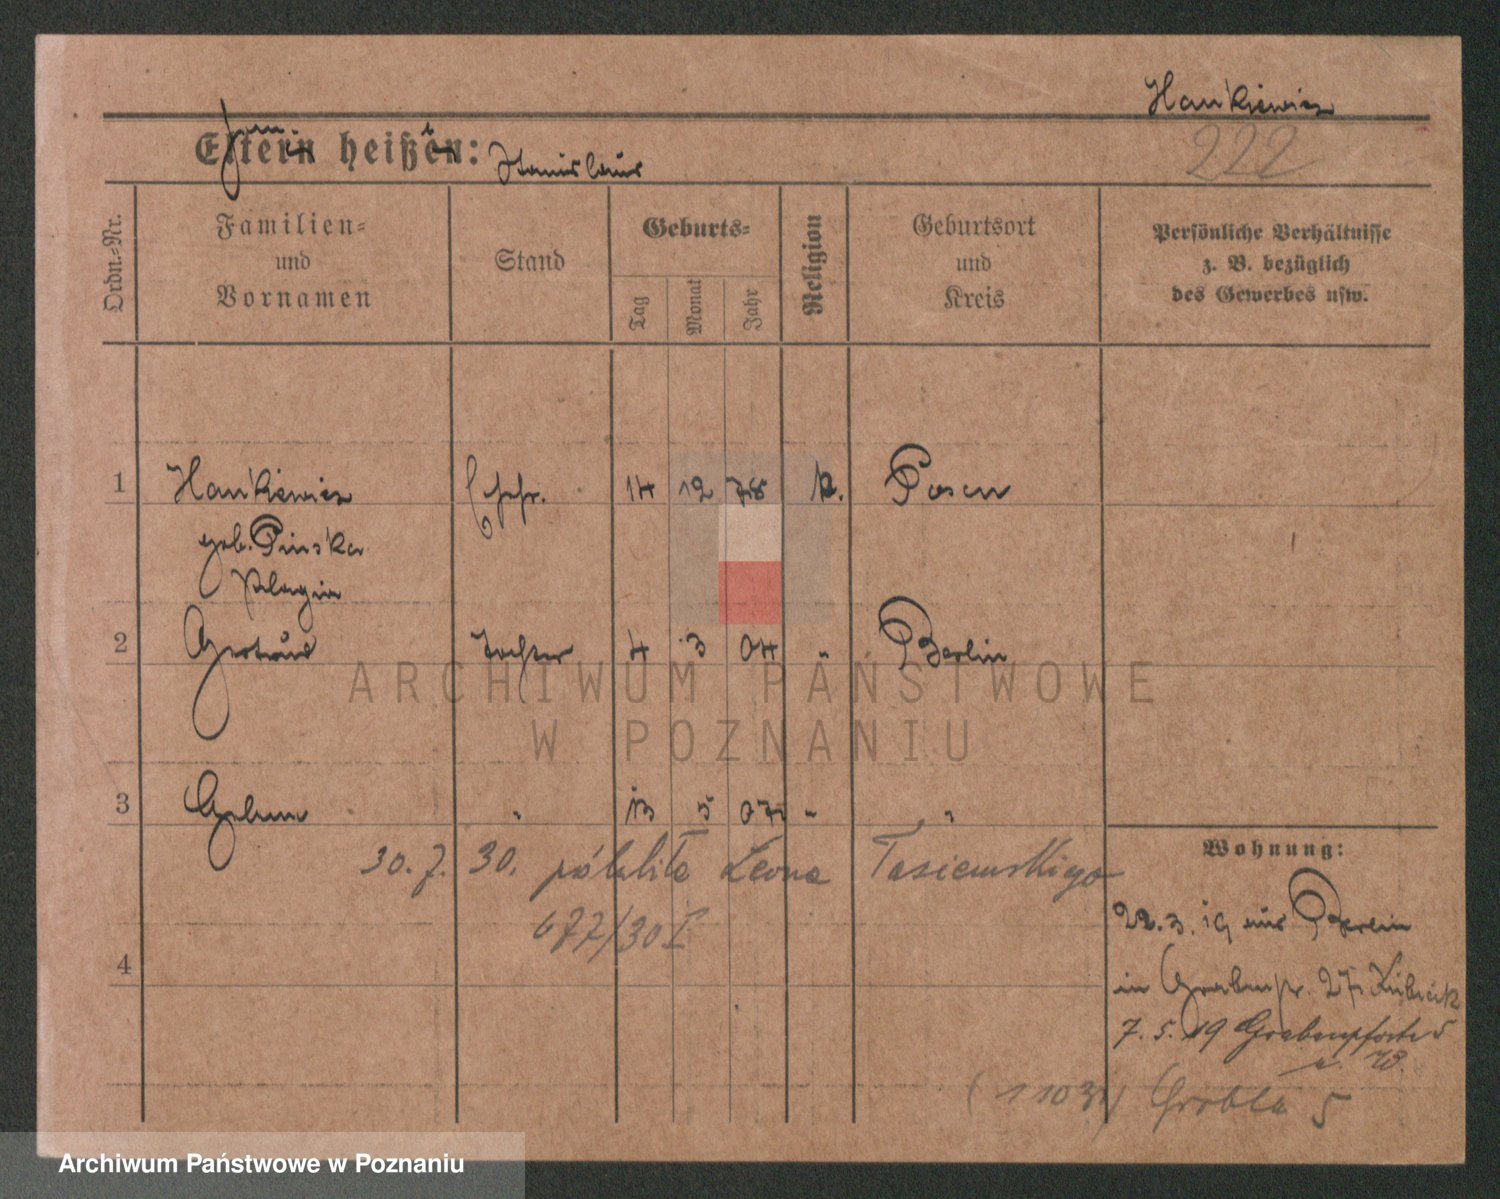 Hankiewicz
Eltern heißen: Stanislaus
222
Ordn.-Nr.
Familien-
und
Vornamen
Stand
Geburts-
Tag
Monat
Jahr
Religion
Geburtsort
und
Kreis
Persönliche Verhältnisse
z. B. bezüglich
des Gewerbes usw.
1 Hankiewicz Ehefr. 14 12 78 k. Posen
geb. Pinska
Pelagia
2 Gertrud Tochter 4 3 04 " Berlin
3 Helene " 13 5 07 " "
30. 7. 30. Leona Tasiemskiego
677/30 I
4
Wohnung:
22. 3. 19 aus Berlin
in Grabenstr. 27 Kubiak
7. 5. 19 Grabenpforte 5
Grobla 5
ARCHIWUM PAŃSTWOWE
W POZNANIU
Archiwum Państwowe w Poznaniu